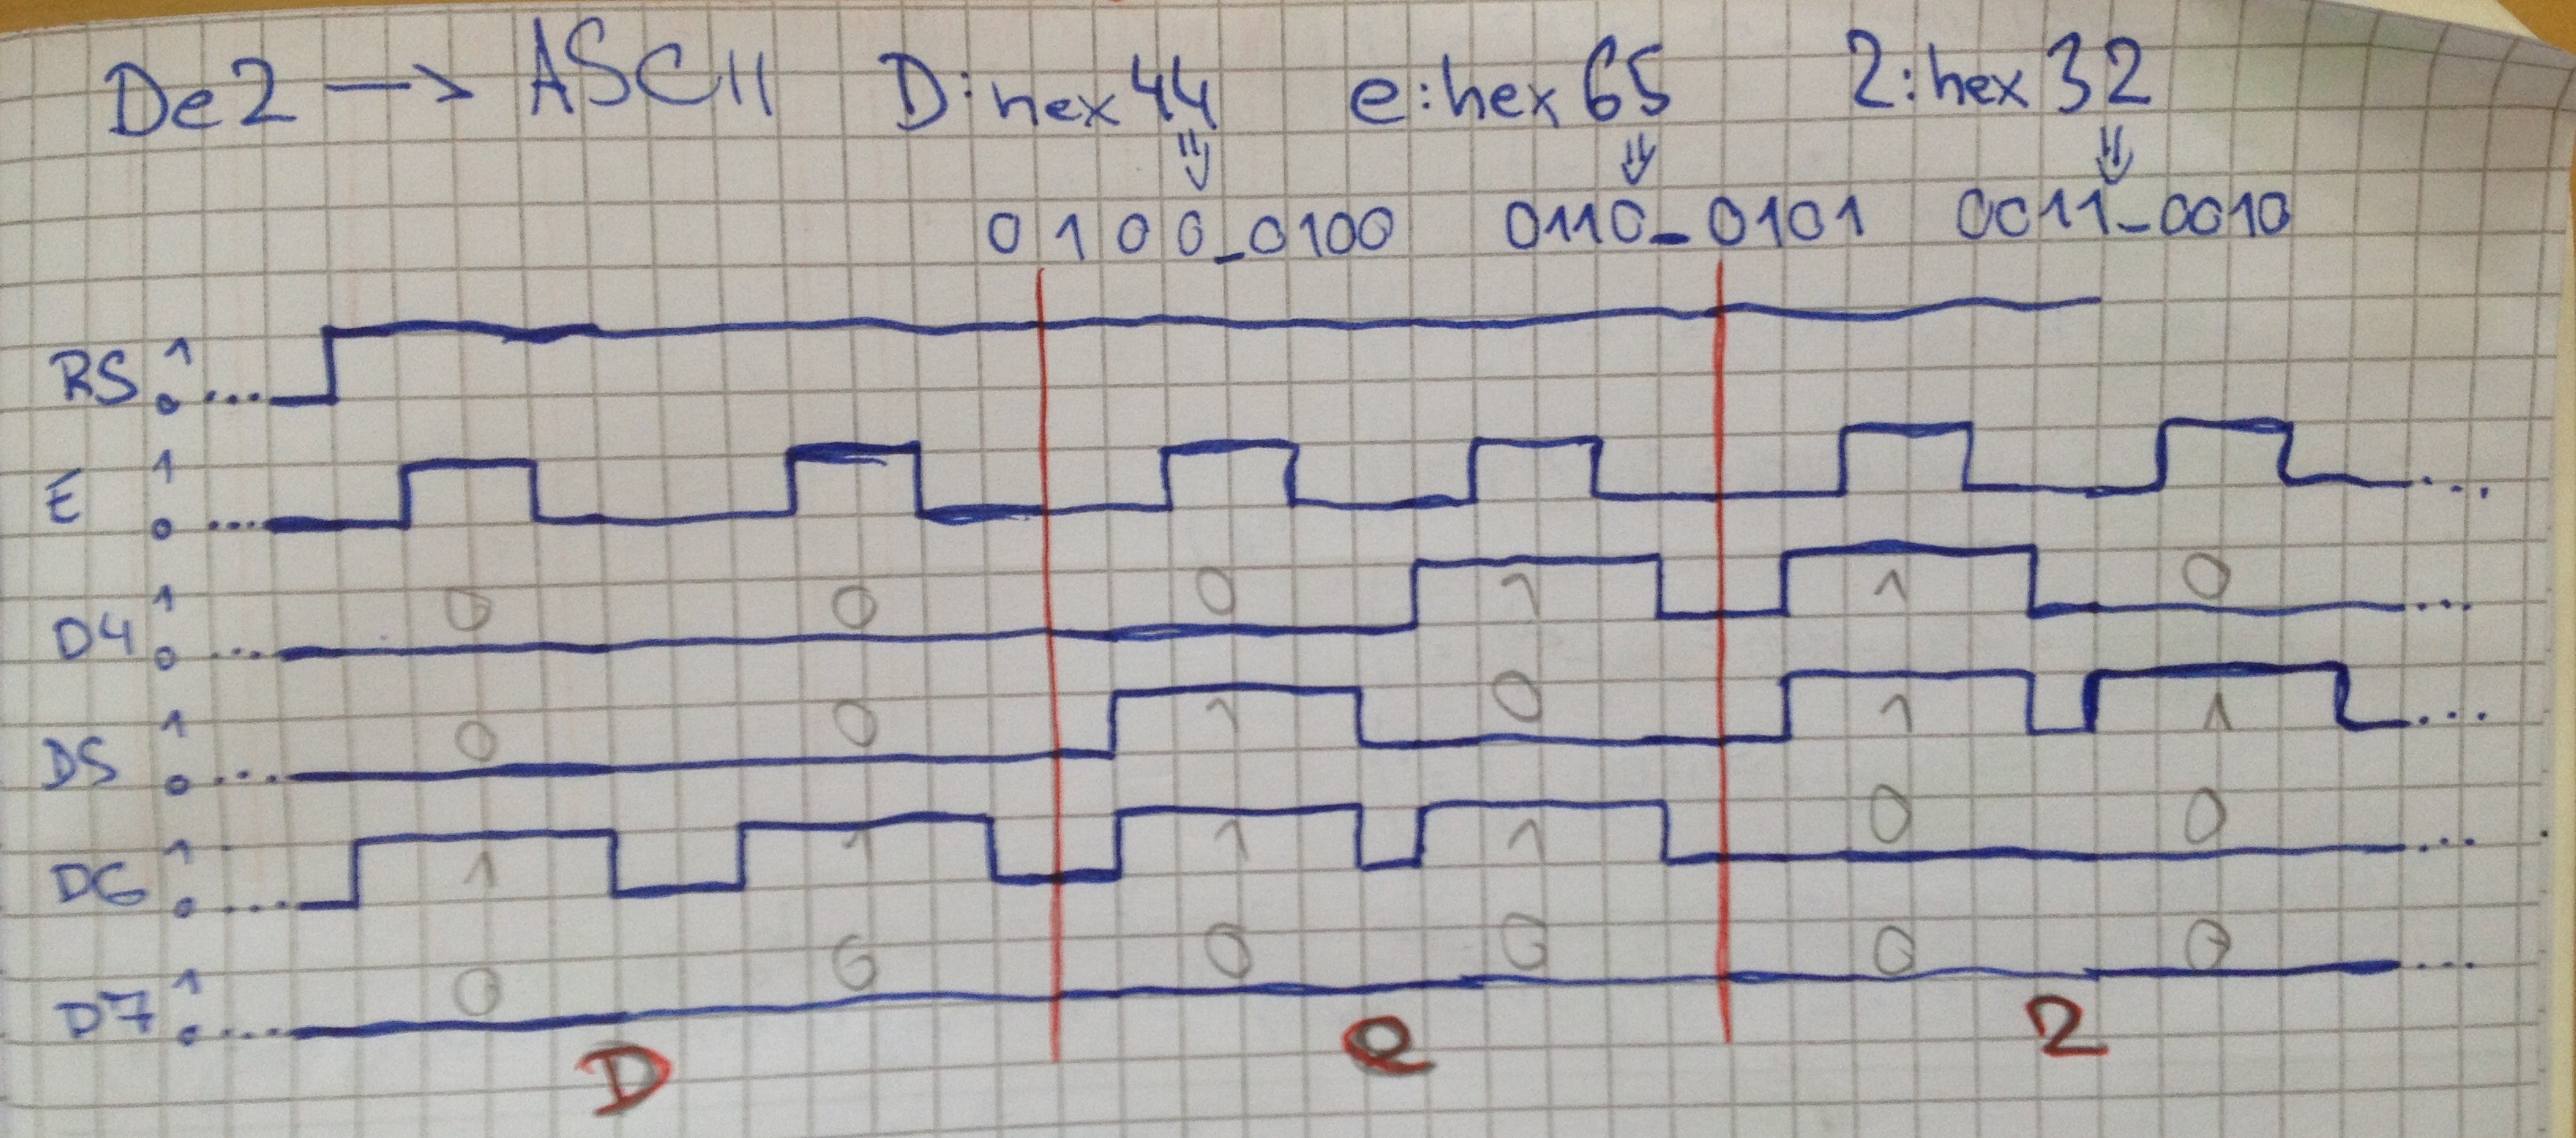 De2 → ASCII D: hex 44 e: hex 65 2: hex 32
⇓ ⇓ ⇓
0100_0100 0110_0101 0011_0010
RS 1
0 ....
E 1
0 .... ...
D4 1 0 0 0 1 1 0
0 .... ...
D5 1 0 0 1 0 1 1
0 .... ...
D6 1 1 1 1 1 0 0
0 .... ...
D7 1 0 0 0 0 0 0
0 .... ...
D e 2